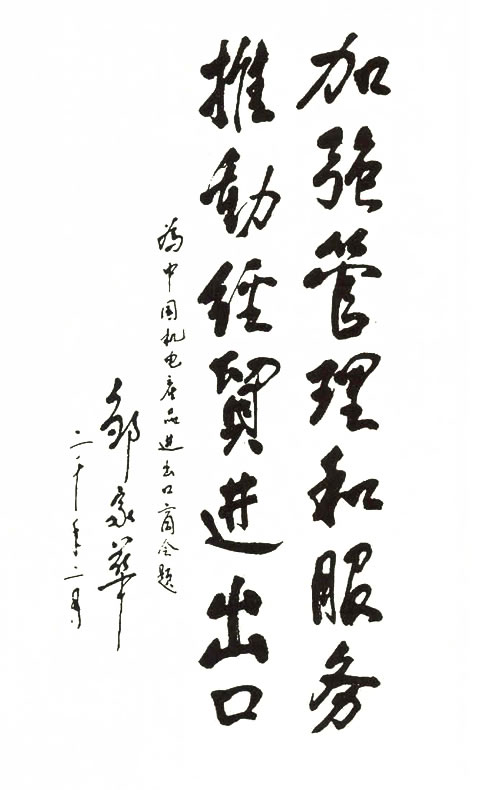 加强管理和服务
推動經貿进出口
為中国机电产品进出口商会题
邹家华
二千年二月